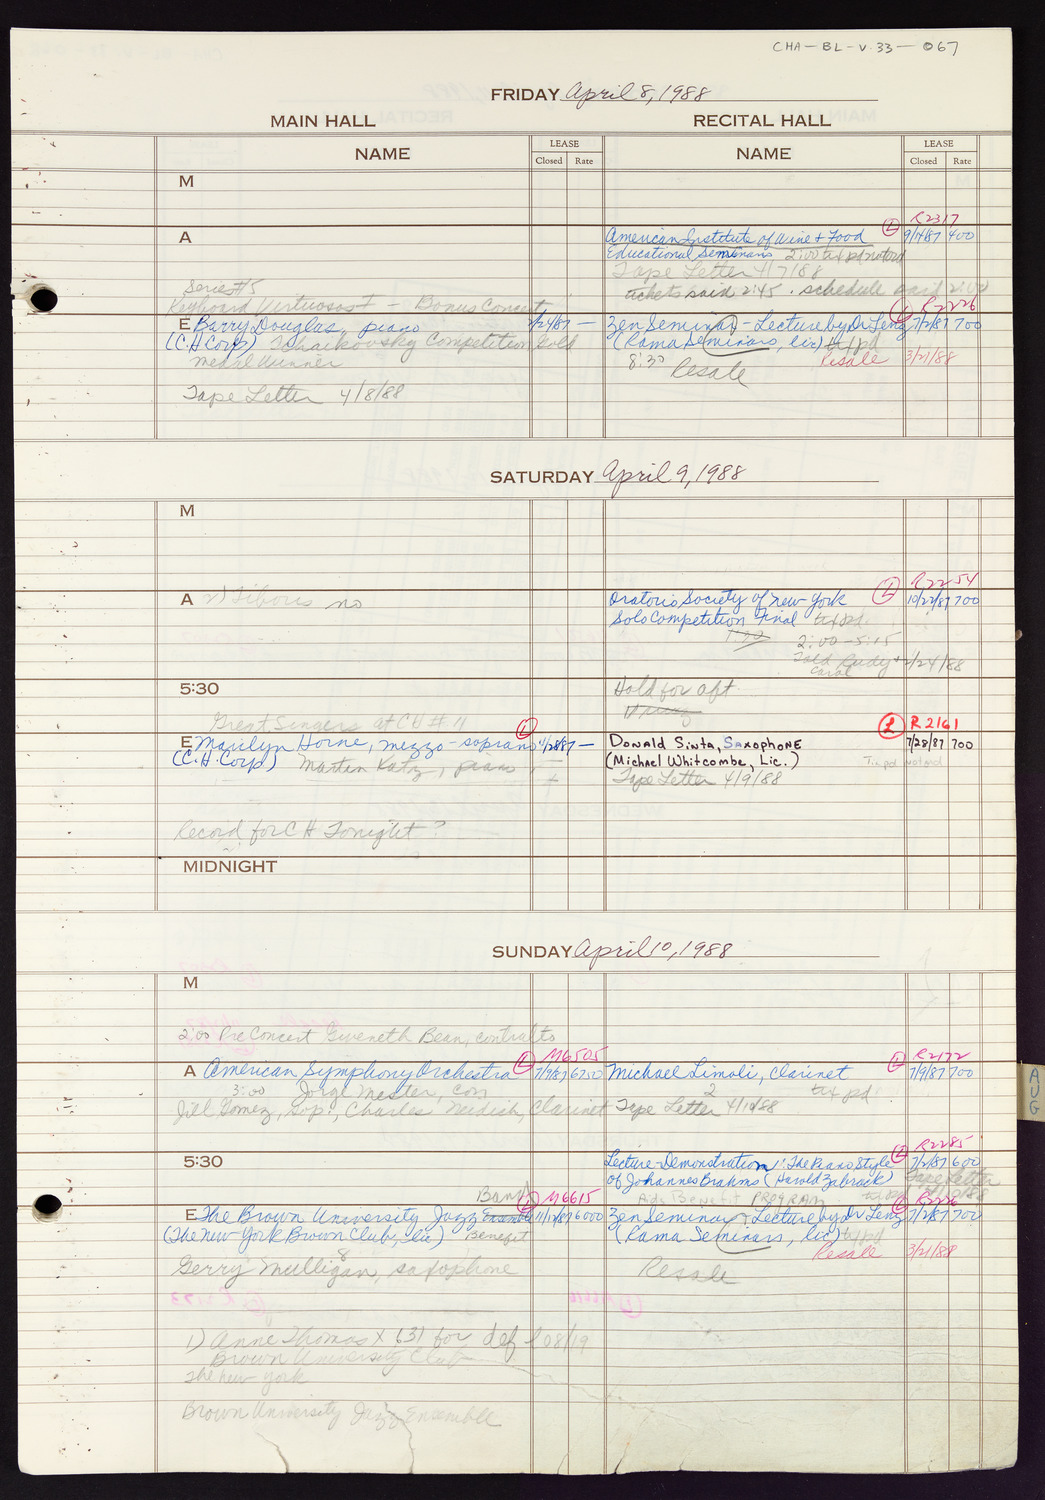 CHA-BL-V.33-067
FRIDAY April 8, 1988
MAIN HALL
RECITAL HALL
NAME
LEASE
Closed Rate
NAME
LEASE
Closed Rate
M
A
Series #5
Keyboard Virtuosos I - Bonus Concert
E Barry Douglas, piano 2/24/87 —
(C.H. Corp) Tchaikovsky Competition Gold
medal Winner
Tape Letter 4/8/88
L R2317
American Institute of Wine + Food 9/14/87 400
Educational Seminars 2:00 tax pd
Tape Letter 4/7/88
tickets said 2:45 . schedule said 2:00
L R2226
Zen Seminar - Lecture by Dr Lenz 7/2/87 700
(Rama Seminars, lic) tax pd
8:30 Resale Resale 3/21/88
SATURDAY April 9, 1988
M
A no
5:30
Great Singers at CH # 11
L
E Marilyn Horne, mezzo-soprano 4/28/87 —
(C.H. Corp) Martin Katz, piano
Record for CH Tonight?
MIDNIGHT
L R2254
Oratorio Society of New York 10/22/87 700
Solo Competition Final tax pd.
7:30
2:00-5:15
Told Rudy + 2/24/88
Carol
Hold for aft
L R2161
Donald Sinta, Saxophone 7/28/87 700
(Michael Whitcombe, Lic.) Tax pd not ord
Tape Letter 4/9/88
SUNDAY April 10, 1988
M
2:00 Pre Concert Gweneth Bean, contralto
L M6505
A American Symphony Orchestra 7/9/87 6250
3:00 Jorge Mester, con
Jill Gomez, Sop., Charles Neidich, Clarinet
5:30
Band L M6615
E The Brown University Jazz Ensemble 11/17/87 6000
(The New York Brown Club, lic) Benefit
8
Gerry Mulligan, saxophone
1) Anne Thomas X 631 for def
Brown University Club
The New York
Brown University Jazz Ensemble
L R2172
Michael Limoli, clarinet 7/9/87 700
2 tax pd
Tape Letter 4/10/88
L R2285
Lecture-Demonstration: "The Piano Style 7/2/87 600
of Johannes Brahms (Harold Zabrack) Tape Letter
Ads Benefit PROGRAM tax pd 4/10/88
L R2226
Zen Seminar - Lecture by Dr Lenz 7/2/87 700
(Rama Seminars, lic) tax pd
Resale 3/21/88
Resale
AUG